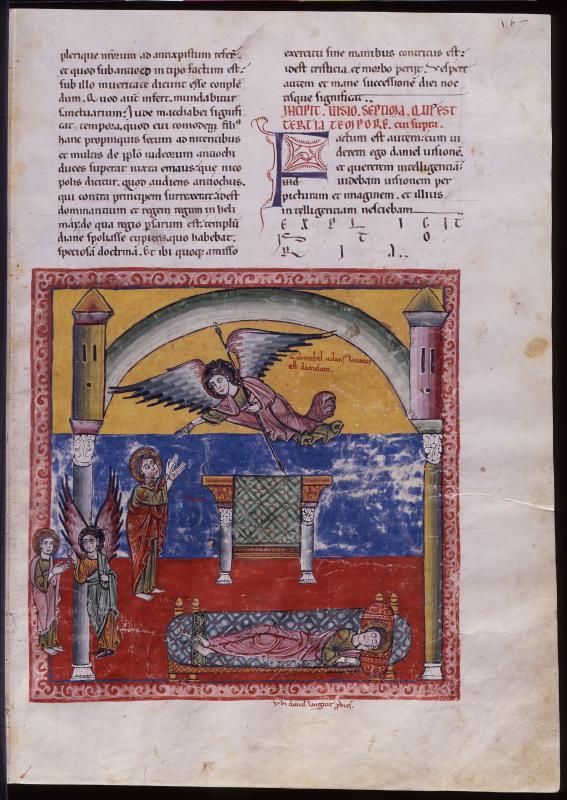 167
plerique nr̄orum ad antixp̄istum refer̄
et quod sub antioco in tipo factum est.
sub illo in veritate dicunt esse conplē
dum. Quod aut̄ infert. mundabitur
sanctuarium: Jude machabei signifi
cat tempora, quod cui comodem filiˢ
hanc propinquis secum ad
et multis de pplō iudeorum antiochi
duces superat iuxta emaus que nico
polis dicitur. quod audiens antiochus,
qui contra principem surrexerat. id est
dominantium et regem regum in heli
de qua regio persarum est. templū
diane spoliasse cupiens. quo habebat,
speciosa doctrina. Et ibi quoque amisso
exercitu sine manibus contritus est.
idest tristicia et morbo periit. Vespere
autem et mane successionē diei noc
tisque significat..
INCIPIT. UISIO. SEPTIMA. QUE EST
TERTIA TEMPORE. cui supra.
Factum est autem cum ui
derem ego daniel uisionē.
et quererem intelligenciā.
uidebam uisionem per
picturam et imaginem. et illius
intelligentiam nesciebam
EXPLICIT
ISTO
RIA.
Gabrihel uolans locutus
est danielum.
Vbi daniel languit p̄ dies.